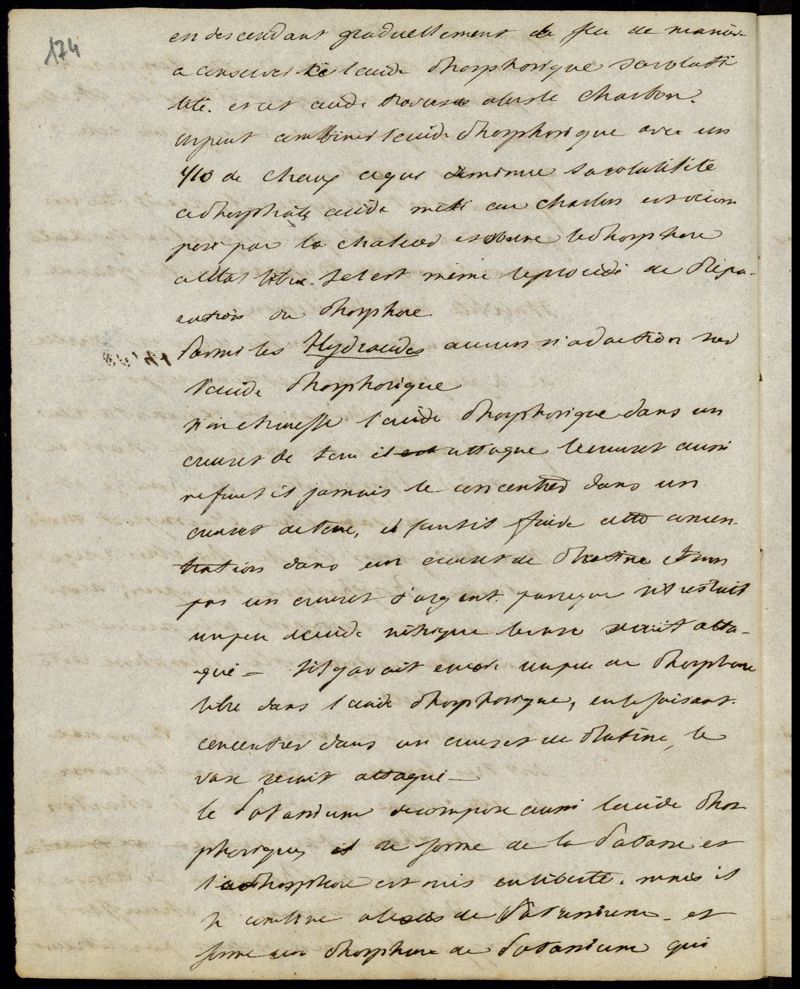 174
en descendant graduellement le feu de manière
a conserver de l'acide Phosphorique sa volati
lité. et cet acide traverse alors le Charbon.
on peut combiner l'acide Phosphorique avec un
1/10 de Chaux ce qui diminue sa volatilité
ce Phosphate acide mêlé au Charbon est décom
posé par la chaleur et donne le Phosphore
a l'état libre. tel est même le procédé de Prépa-
ration du Phosphore.
Parmi les Hydracides aucun n'a d'action sur
l'acide Phosphorique
si on chauffe l'acide Phosphorique dans un
creuset de terre il attaque le creuset aussi
ne faut il jamais le concentrer dans un
creuset de terre, il faut faire cette concen-
tration dans un creuset de Platine et non
pas un creuset d'argent. parceque s'il restait
un peu d'acide nitrique le vase serait atta-
qué — s'il y avait encore un peu de Phosphore
libre dans l'acide Phosphorique, en le faisant
concentrer dans un creuset de Platine, le
vase serait attaqué —
le Potassium decompose aussi l'acide Phos
phorique, il se forme de la Potasse et
le Phosphore est mis en liberté. mais il
se combine a l'excès de Potassium. et
forme un Phosphure de Potassium qui